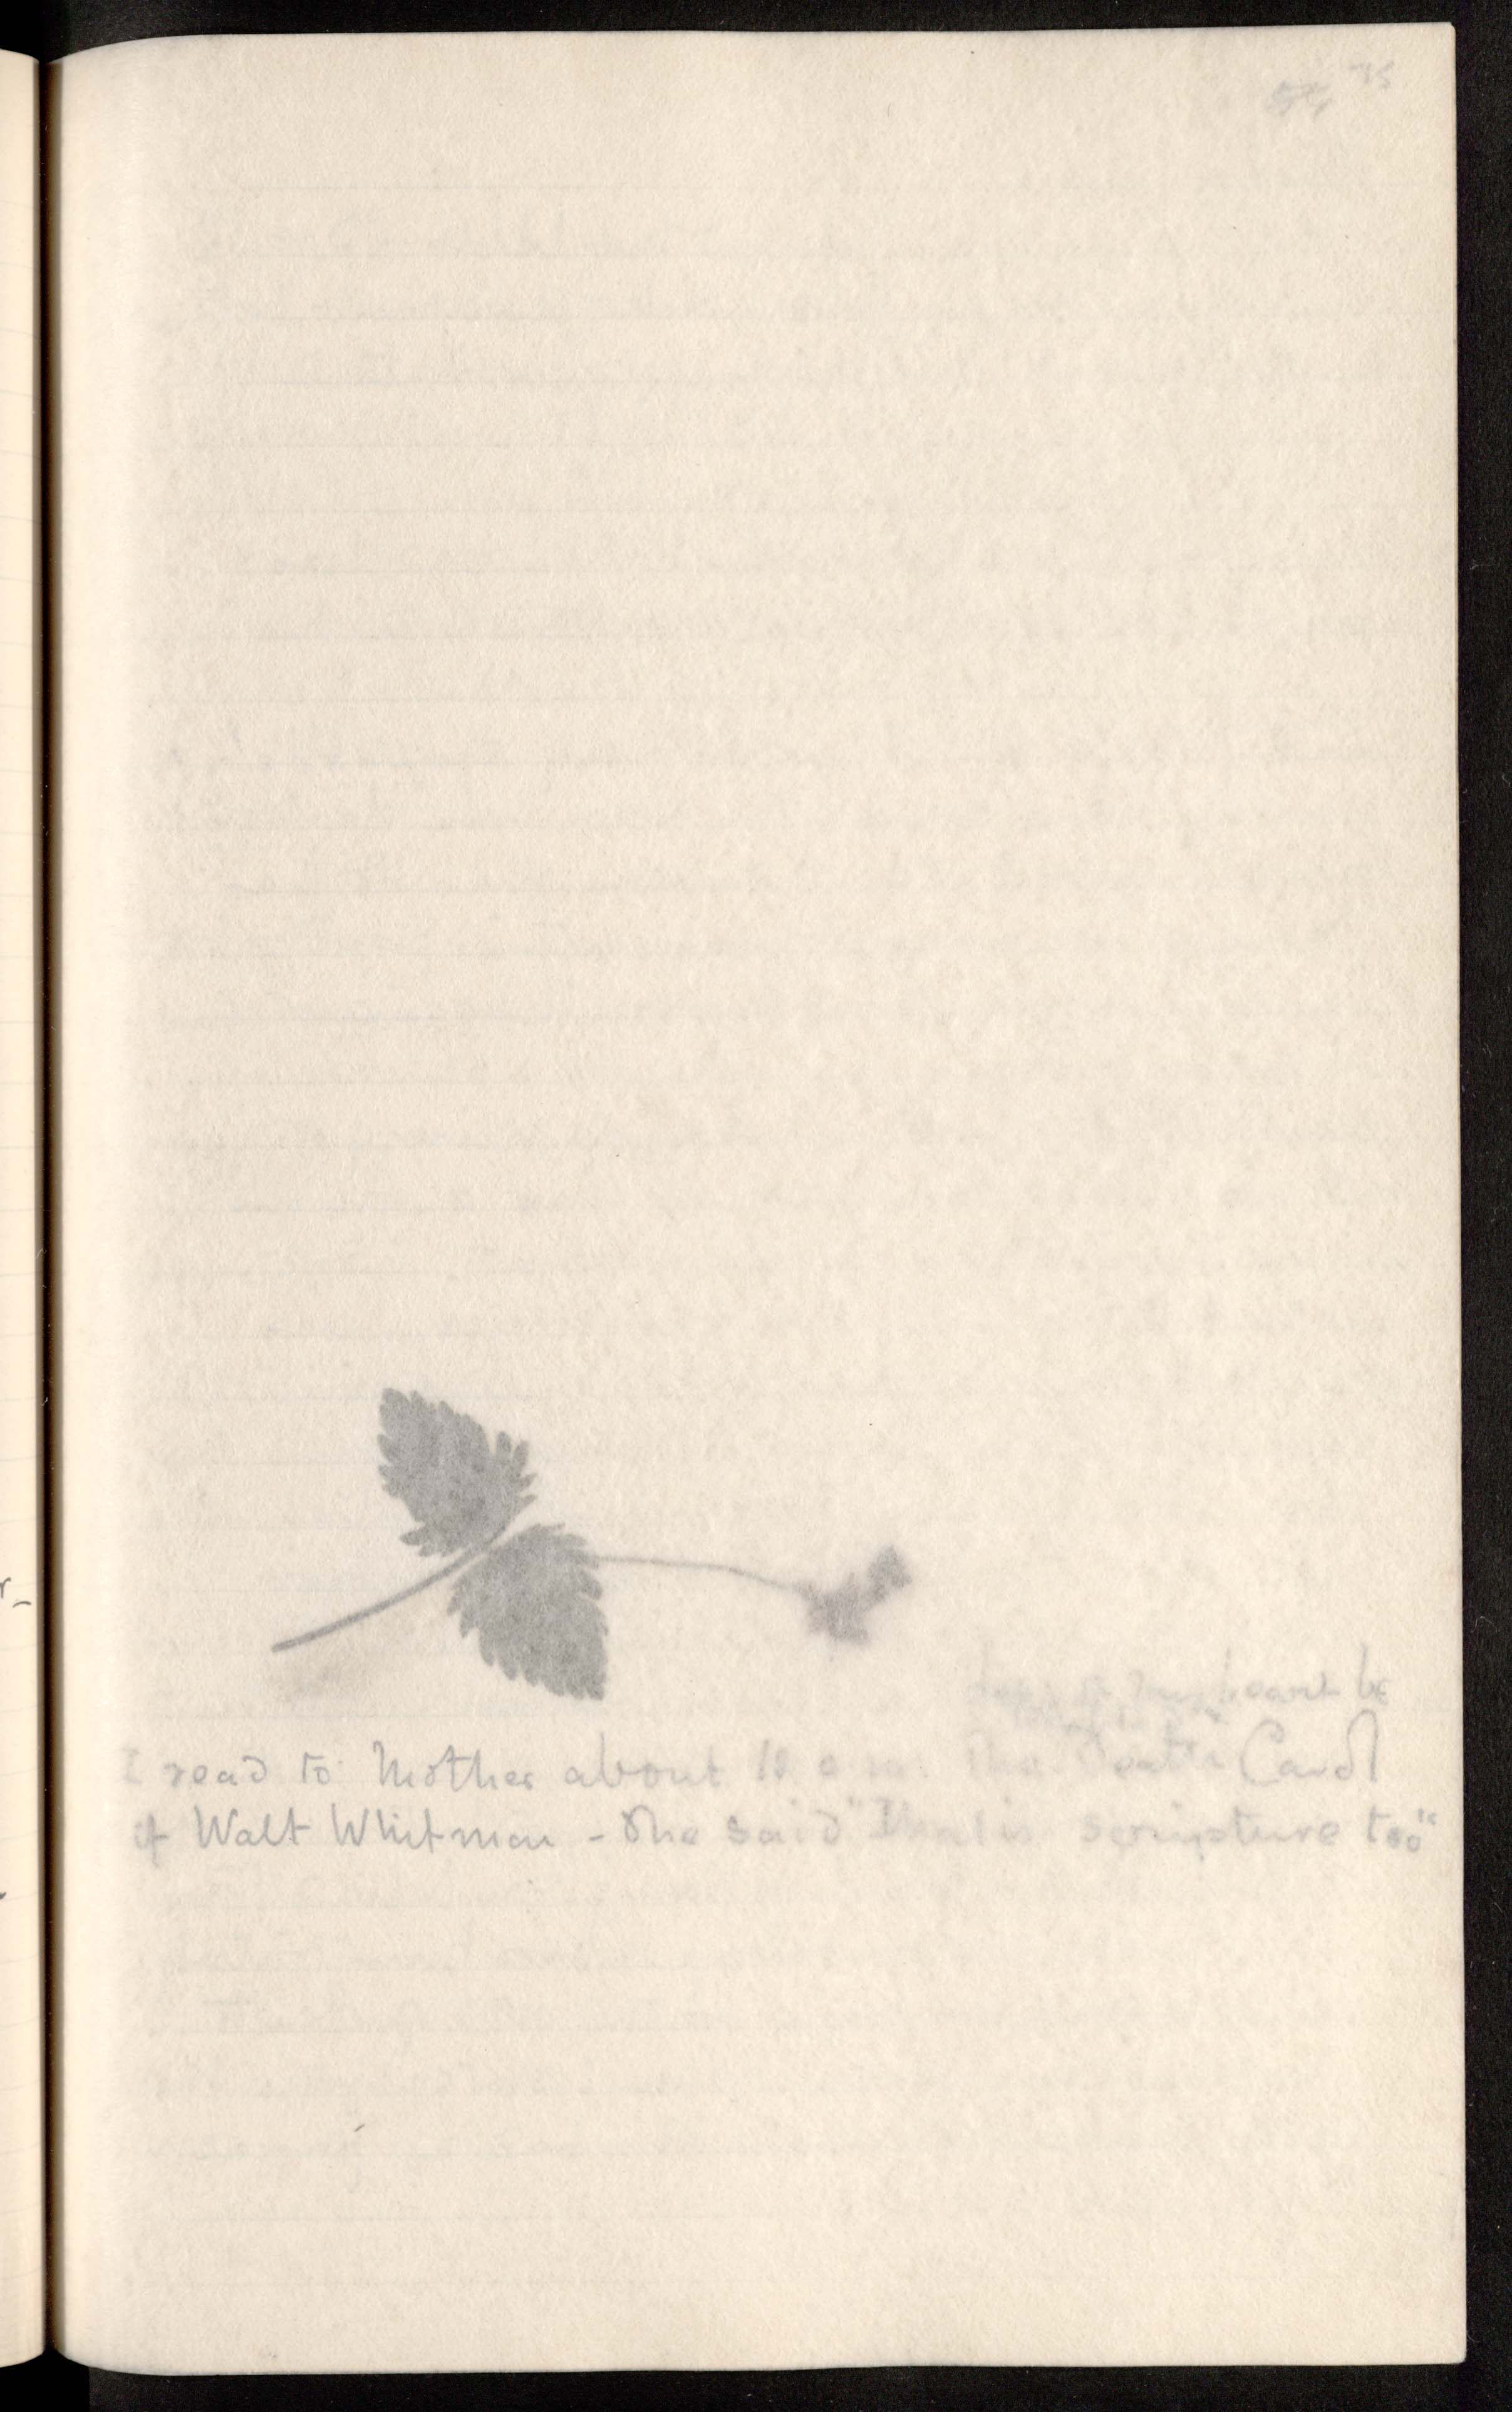 75
heart be
I read to Mother about 12 a m. The "Death" Carol
of Walt Whitman - She said "That is scripture too"